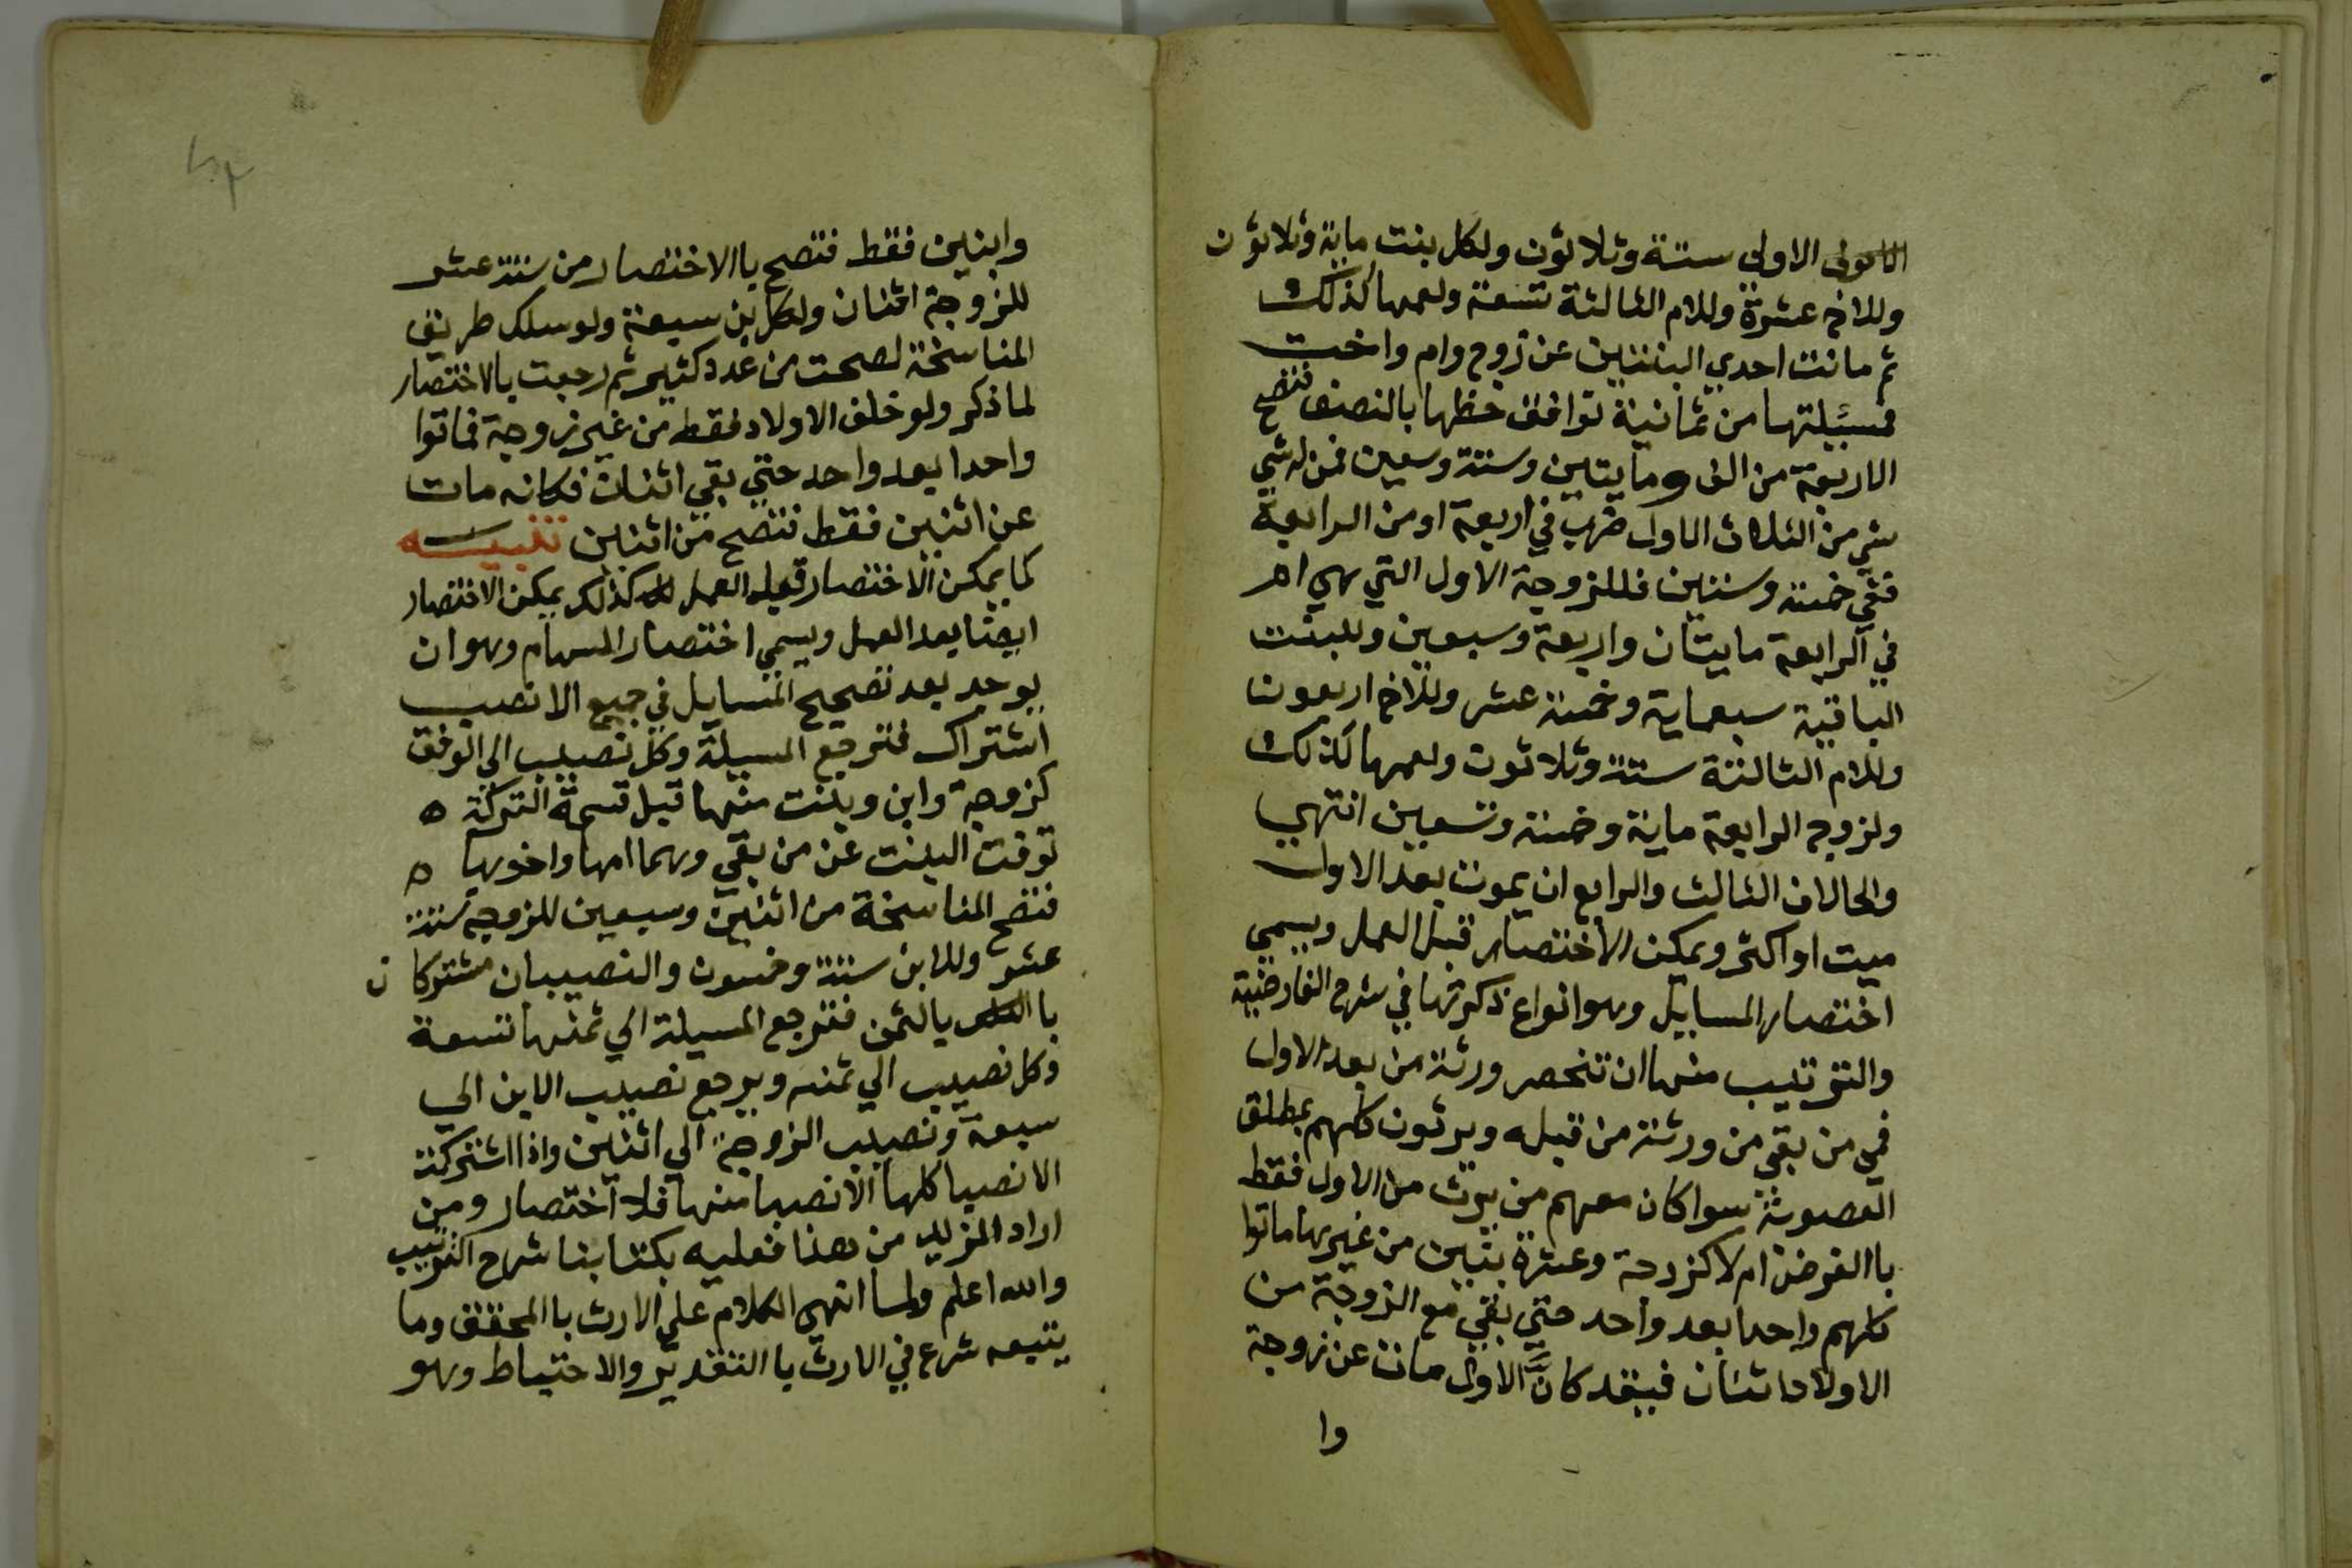 الاولى ستة وثلاثون ولكل بنت ماية وثلاثون
وللاخ عشرة وللام الثالثة تسعة ولعمها كذلك
ثم ماتت احدي البنتين عن زوج وام واخت
فمسيلتها من ثمانية توافق حظها بالنصف فتصح
الاربعة من الف ومايتين وستة وسعين فمن له شي
شي من الثلاث الاول ضرب في اربعة او من الرابعة
ففي خمسة وستين فللزوجة الاول التي هي ام
في الرابعة مايتان واربعة وسبعين وللبنت
الباقية سبعماية وخمسة عشر وللاخ اربعون
وللام الثالثة ستة وثلاثون ولعمها كذلك
ولزوج الرابعة ماية وخمسة وتسعين انتهي
والحالان الثالث والرابع ان يموت بعد الاول
ميت او اكثر ويمكن الاختصار قبل العمل ويسمي
اختصار المسايل وهو انواع ذكرتها في شرح الفارضية
والترتيب منها ان تنحصر ورثة من بعد الاول
في من بقي من ورثة من قبله ويرثون كلهم بمطلق
العصوبة سوا كان معهم من يرث من الاول فقط
باالفرض ام لا كزوجة وعشرة بنين من غيرها ماتوا
كلهم واحدا بعد واحد حتي بقي مع الزوجة من
الاولاد اثنان فيقد كانَّ الاول مات عن زوجة
وا
وابنين فقط فتصح باالاختصار من ستة عشر
للزوجة اثنان ولكل بن سبعة ولو سلك طريق
المناسخة لصحت من عدد كثير ثم رجعت بالاختصار
لما ذكر ولو خلف الاولاد فقط من غير زوجة فماتوا
واحدا بعد واحد حتي بقي اثنان فكانه مات
عن اثنين فقط فتصح من اثنين تنبيه
كما يمكن الاختصار قبل العمل كذلك يمكن الاختصار
ايضا بعد العمل ويسمي اختصار السهام وهو ان
يوجد بعد تصحيح المسايل في جميع الانصب
اشتراك فترجع المسيلة وكل نصيب الي الوفق
كزوجة وابن وبنت منها قبل قسمة التركة ه
توفت البنت عن من بقي وهما امها واخوها ه
فتصح المناسخة من اثنين وسبعين للزوجة ستة
عشر وللابن ستة وخمسون والنصيبان مشتركان
يالثمن فترجع المسيلة الي ثمنها تسعة
وكل نصيب الي ثمنه ويرجع نصيب الابن الي
سبعة ونصيب الزوجة الي اثنين واذا اشتركت
الانصبا كلها الا نصيبا منها فلا اختصار ومن
اراد المزيد من هذا فعليه بكتابنا شرح الترتيب
والله اعلم ولما انتهى الكلام علي الارث باالمحقق وما
يتبعه شرع في الارث باالتقدير والاحتياط وهو